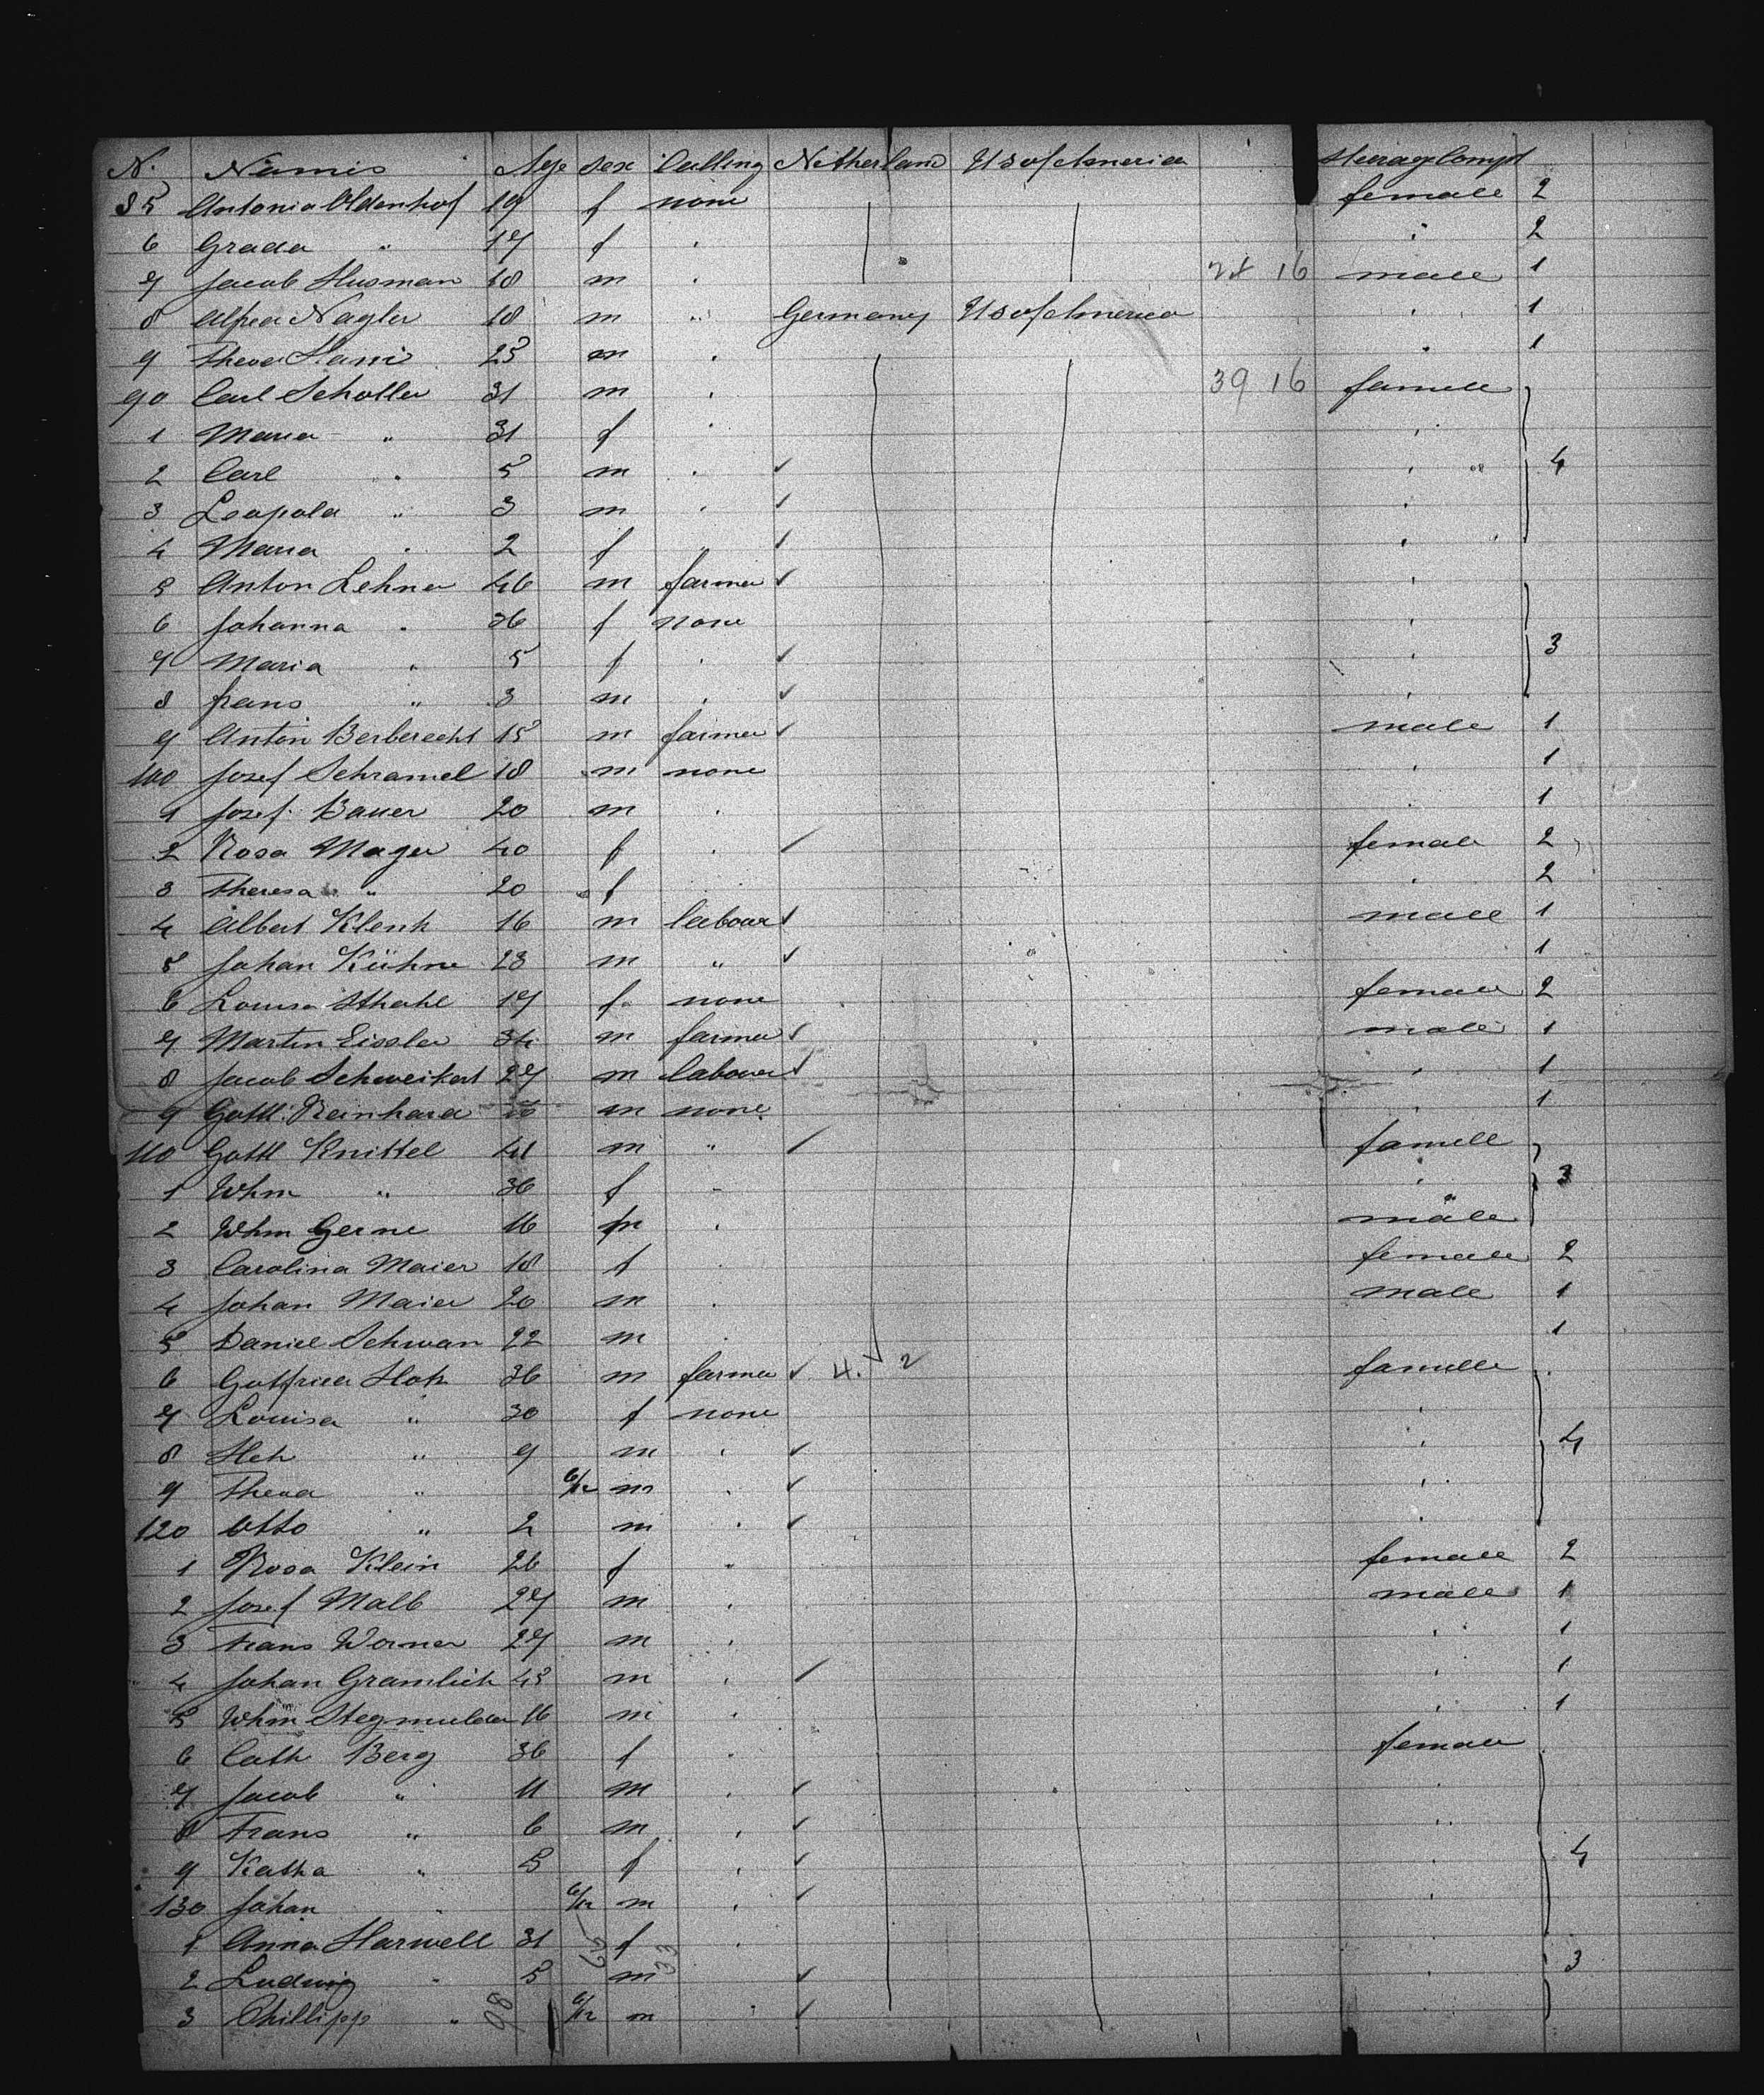 N. Names Age Sex Calling Netherland US of America Steerage Compt
85 Antonia Oldenhof 19 f none female 2
6 Grada " 17 f " " 2
7 Jacob Husman 18 m " 24 16 male 1
8 Alfred Nagler 18 m " Germany US of America " 1
9 Theod 25 m " " 1
90 Carl Scholler 31 m " 39 16 famell
1 Maria " 31 f " "
2 Carl " 5 m " ✓ " 4
3 Leopold " 3 m " ✓ "
4 Maria " 2 f " ✓ "
5 Anton Lehner 46 m farmer ✓ "
6 Johanna " 36 f none "
7 Maria " 5 f " ✓ " 3
8 frans " 3 m " ✓ "
9 Anton Berberecht 15 m farmer ✓ male 1
100 Josef Schramel 18 m none " 1
1 Josef Bauer 20 m " " 1
2 Rosa Mager 40 f " ✓ female 2
3 Theresa " 20 f " " 2
4 Albert Klenk 16 m labour ✓ male 1
5 Johan Kühne 23 m " ✓ 1
6 Louisa Sthahl 17 f none female 2
7 Martin Eissler 34 m farmer ✓ male 1
8 Jacob Schweikert 27 m labour ✓ " 1
9 Gottl. Reinhard m none " 1
110 Gottl Knittel 41 m " ✓ famell
1 Whm " 36 f " " 3
2 Whm Gerne 16 m " male
3 Carolina Maier 18 f " female 2
4 Johan Maier 20 m " male 1
5 Daniel Schwan 22 m " 1
6 Gottfried Hoh 36 m farmer ✓ 4. 2 famelle
7 Louisa " 30 f none "
8 Hch " 9 m " ✓ " 4
9 Theod " 6/12 m " ✓ "
120 Otto " 2 m " ✓ "
1 Rosa Klein 26 f " female 2
2 Josef Malb 27 m " male 1
3 Frans Werner 27 m " " 1
4 Johan Gramlich 43 m " ✓ " 1
5 Whm Stegmuller 16 m " " 1
6 Cath Berg 36 f " female
7 Jacob " 11 m " ✓ "
8 Frans " 6 m " ✓ "
9 Katha " 5 f " ✓ " 4
130 Johan " 6/12 m " ✓ "
1 Anna Harwell 31 f "
2 Ludwig " 5 m ✓ " 3
3 Phillipp " 6/12 m " ✓ "
65 33
98